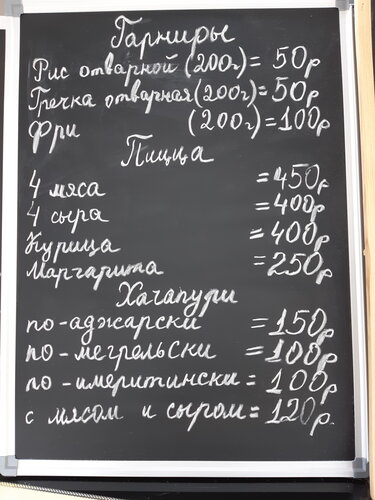 Гарниры
Рис отварной (200г) = 50р
Гречка отварная (200г) = 50р
Фри (200г) = 100р
Пицца
4 мяса = 450р
4 сыра = 400р
Курица = 400р
Маргарита = 250р
Хачапури
по-аджарски = 150р
по-мегрельски = 100р
по-имеритински = 100р
с мясом и сыром = 120р